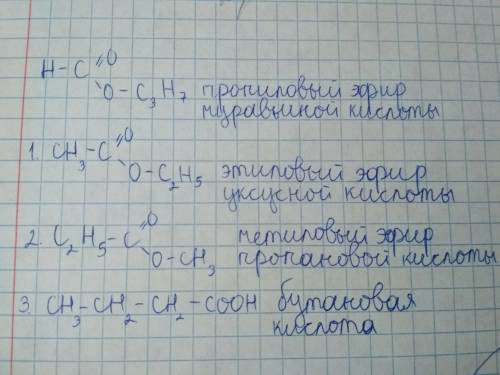 H-C=O
O-C3H7 пропиловый эфир
муравьиной кислоты
1. CH3-C=O
O-C2H5 этиловый эфир
уксусной кислоты
2. C2H5-C=O метиловый эфир
O-CH3 пропановой кислоты
3. CH3-CH2-CH2-COOH бутановая
кислота